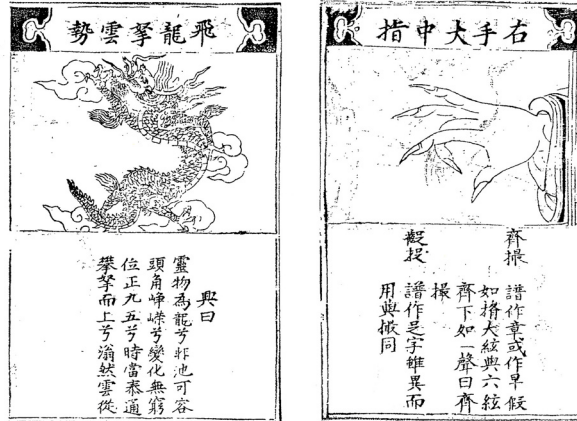 右手大中指
齊撮 譜作 或作早假
如 大絃與六絃
齊下如一聲曰齊
撮
譜作足字雖異而
用與撮同
飛龍拏雲勢
興曰
靈物為龍兮非池可容
頭角崢嶸兮變化無窮
位正九五兮時當泰通
攀拏而上兮滃然雲從